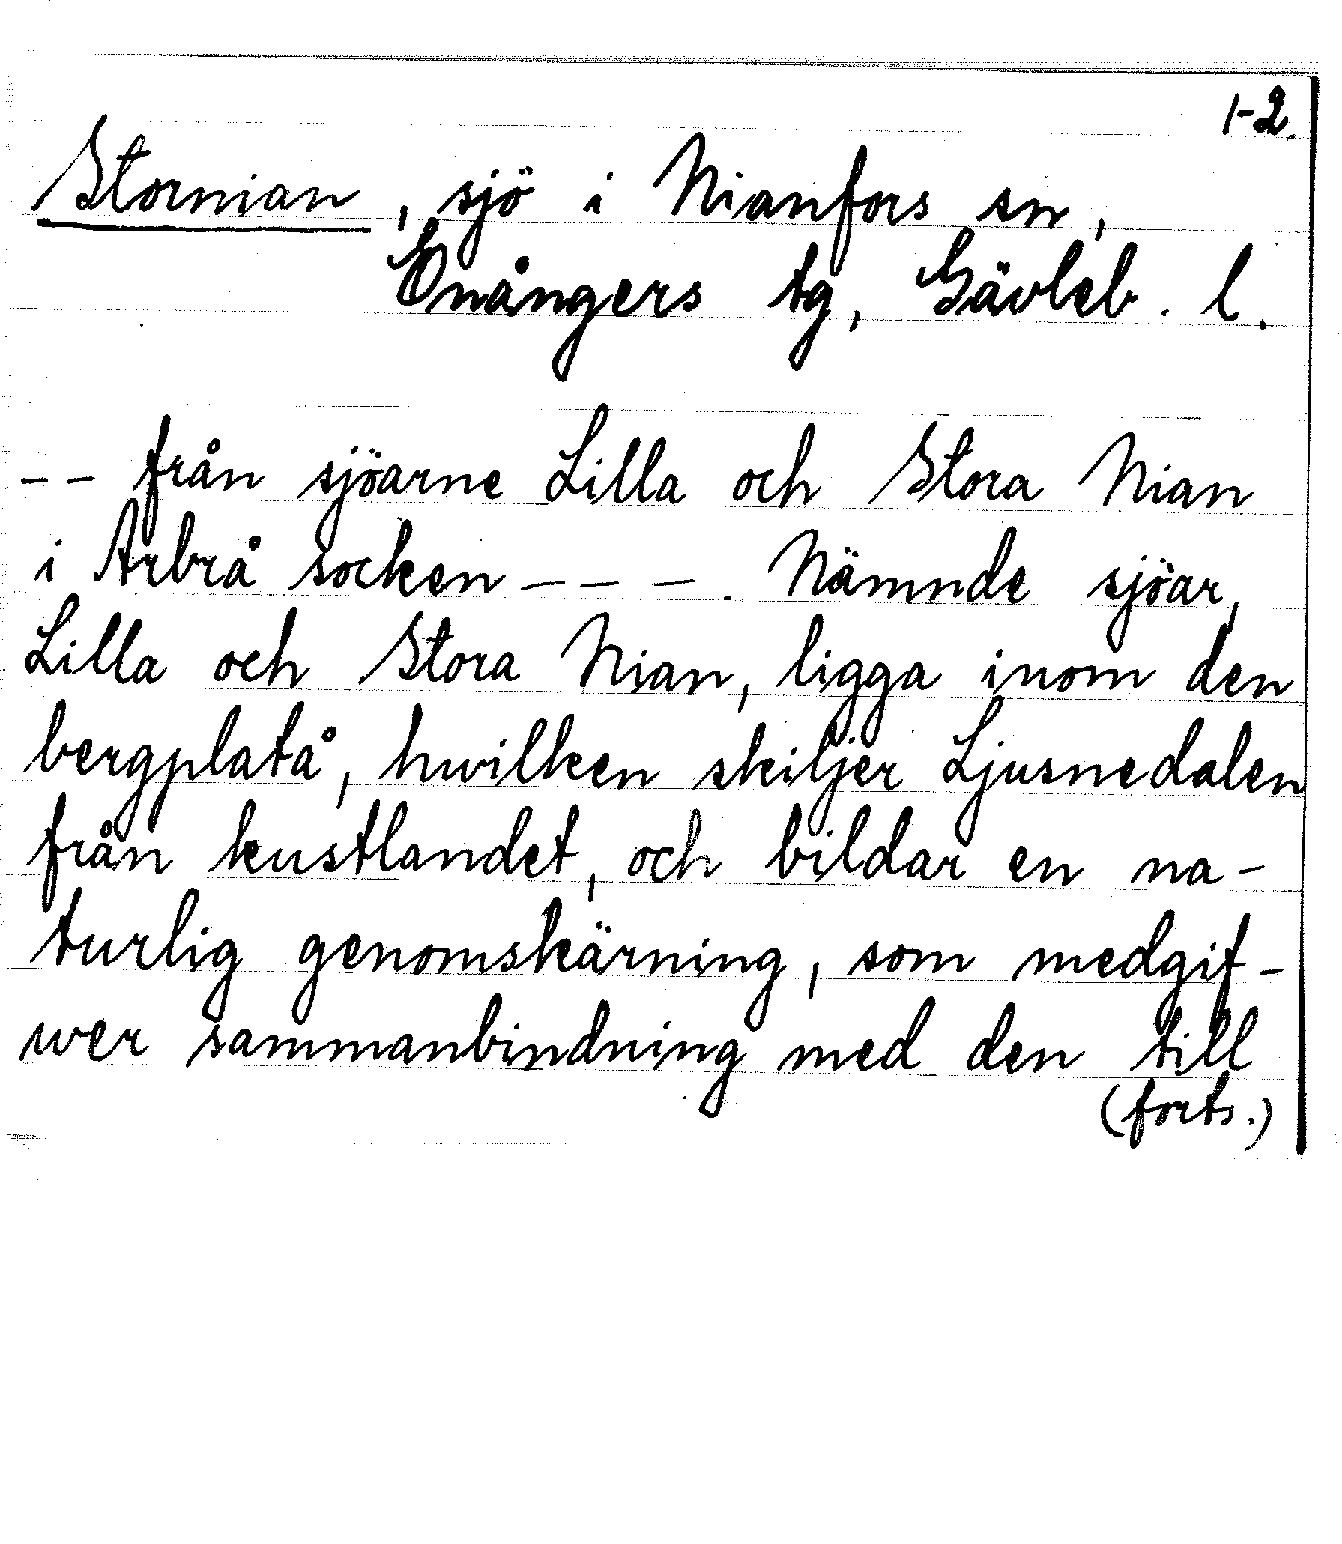 1-2.
Stornian, sjö i Nianfors sn,
Enångers tg, Gävleb. l.
-- från sjöarne Lilla och Stora Nian
i Arbrå socken - - - . Nämnde sjöar,
Lilla och Stora Nian, ligga inom den
bergplatå, hwilken skiljer Ljusnedalen
från kustlandet, och bildar en na-
turlig genomskärning, som medgif-
wer sammanbindning med den till
(forts.)